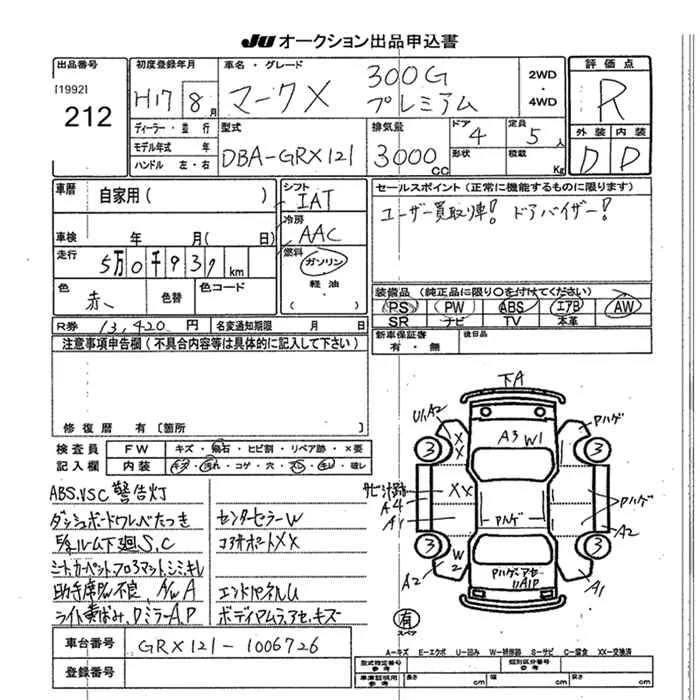 JU オークション出品申込書
出品番号
[1992]
212
初度登録年月
H17 8月
車名・グレード
マークX 300G プレミアム
2WD
・
4WD
評価点
R
外装 内装
D D
ディーラー・並行
モデル年式 年
ハンドル 左・右
型式
DBA-GRX121
排気量
3000 CC
ドア 4
形状
定員 5人
積載 Kg
車歴
自家用( )
車検 年 月( 日)
走行
5万0千937km
色
赤
色替
色コード
シフト
IAT
冷房
AAC
燃料
ガソリン
軽油
( )
R券 13,420円 名変通知期限 月 日
セールスポイント(正常に機能するものに限ります)
ユーザー買取り車! ドアバイザー!
装備品(純正品に限り○を付けてください)
PS PW ABS エアB AW
SR ナビ TV 本革
新車保証書
有・無
後日品
注意事項申告欄(不具合内容等は具体的に記入して下さい)
修復歴 有〔箇所
検査員
記入欄
FW キズ・飛石・ヒビ割・リペア跡・×要
内装 キズ・汚れ・コゲ・穴・スレ・キレ・破レ
ABS.VSC警告灯
ダッシュボードワレ、べたつき
室ルーム下廻S.C
シート、カーペット、フロアマット、シミ、キレ
不良、A/W A
ライト黄ばみ、DミラーA,P
センターピラーW
コアサポートXX
エンドパネルU
ボディアムラ,アセ,キズ
下A
U1,A2
Pハゲ
XX
A3 W1
3
3
3
3
サビ
A4
A1
XX
Pハゲ
Pハゲ
A2
W2
A2
Pハゲ・アセ
U A1P
A1
有
スペア
A-キズ E-エクボ U-凹み W-補修跡 S-サビ C-腐食 XX-交換済
車台番号 GRX121-1006726
登録番号
型式指定番号
参考
類別区分番号
参考
車庫証明用
参考
長さ cm 幅 cm 高さ cm